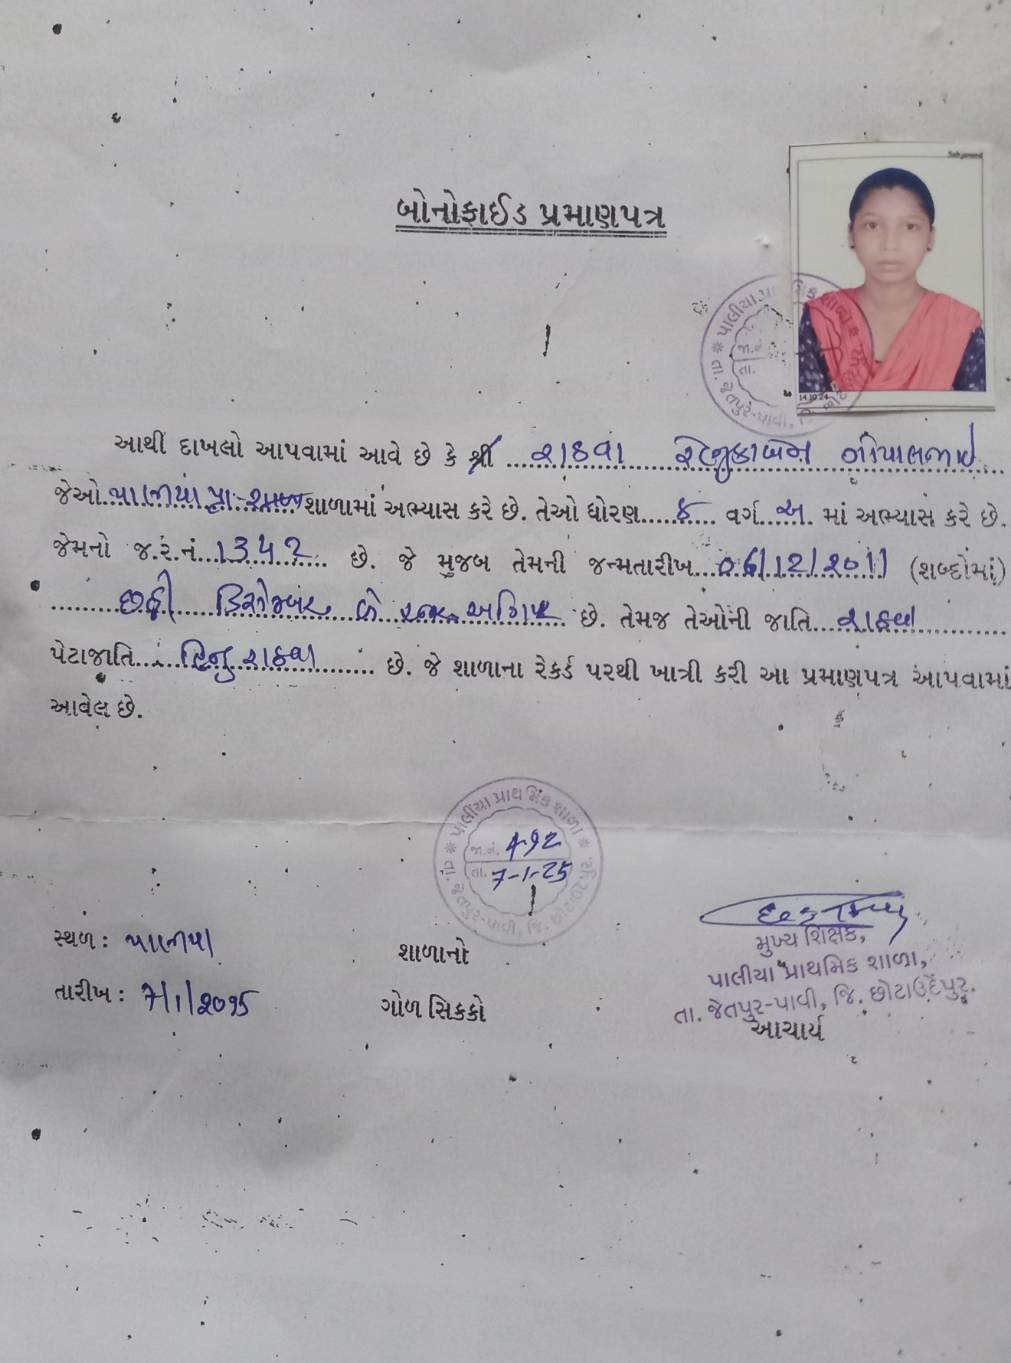 બોનોફાઈડ પ્રમાણપત્ર
14.10.24
આથી દાખલો આપવામાં આવે છે કે શ્રી રાઠવા રેણુકાબેન ગોપાલભાઈ
જેઓ પાલીયા પ્રા. શાળા શાળામાં અભ્યાસ કરે છે. તેઓ ધોરણ વર્ગ અ માં અભ્યાસ કરે છે.
જેમનો જ.ર.નં. 1342 છે. જે મુજબ તેમની જન્મતારીખ 06/12/2011 (શબ્દોમાં)
છઠ્ઠી ડિસેમ્બર બે હજાર અગિયાર છે. તેમજ તેઓની જાતિ રાઠવા
પેટાજાતિ હિન્દુ રાઠવા છે. જે શાળાના રેકર્ડ પરથી ખાત્રી કરી આ પ્રમાણપત્ર આપવામાં
આવેલ છે.
પાલીયા પ્રાથમિક શાળા
જા.નં. 492
તા. 7-1-25
તા. જેતપુર-પાવી, જિ.
સ્થળ : પાલીયા
તારીખ : 7/1/2025
શાળાનો
ગોળ સિક્કો
મુખ્ય શિક્ષક,
પાલીયા પ્રાથમિક શાળા,
તા. જેતપુર-પાવી, જિ. છોટાઉદેપુર.
આચાર્ય